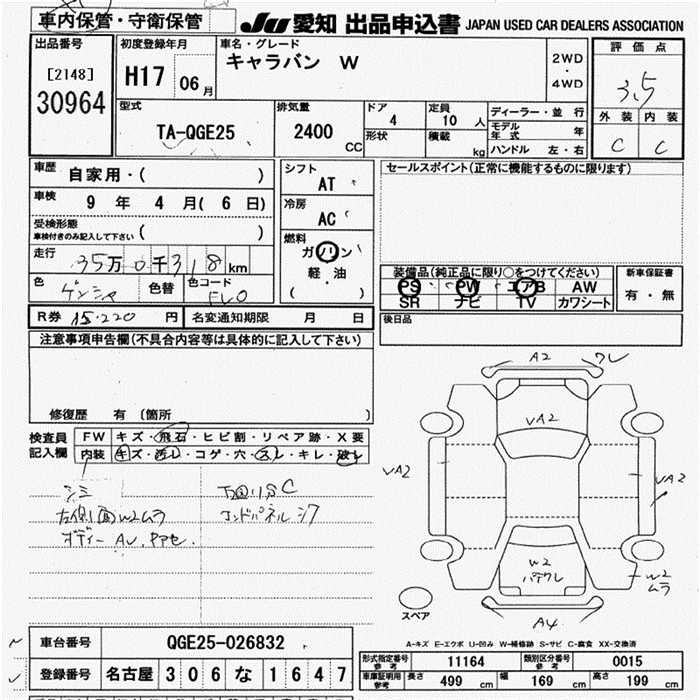 車内保管・守衛保管
JU 愛知 出品申込書 JAPAN USED CAR DEALERS ASSOCIATION
出品番号
[2148]
30964
初度登録年月
H17 06 月
車名・グレード
キャラバン W
2WD
・
4WD
評価点
3.5
外装 内装
C C
型式
TA-QGE25
排気量
2400 CC
ドア
4
形状
定員
10 人
積載 kg
ディーラー・並行
モデル年式 年
ハンドル 左・右
車歴 自家用・( )
車検 9 年 4 月( 6 日)
受検形態
車検付きのみ記入して下さい ( )
走行 35万0千318km
色 ゲンシャ 色替 色コード EV0
シフト
AT
冷房
AC
燃料
ガソリン
・
軽・油
( )
セールスポイント(正常に機能するものに限ります)
装備品(純正品に限り○をつけてください)
PS PW エアB AW
SR ナビ TV カワシート
新車保証書
有・無
R券 15.220 円 名変通知期限 月 日
後日品
注意事項申告欄(不具合内容等は具体的に記入して下さい)
修復歴 有 (箇所 )
検査員記入欄
FW キズ・飛石・ヒビ割・リペア跡・X要
内装 キズ・汚レ・コゲ・穴・スレ・キレ・破レ
シミ
左側面W2ムラ
ボディー AU.
A2 ワレ
VA2
VA2
VA2
VA2
W2
W2
ムラ
A4
スペア
A-キズ E-エクボ U-凹み W-補修跡 S-サビ C-腐食 XX-交換済
車台番号 QGE25-026832
登録番号 名古屋 306 な 1647
形式指定番号 参考 11164 類別区分番号 参考 0015
車庫証明用 参考 長さ 499 cm 幅 169 cm 高さ 199 cm